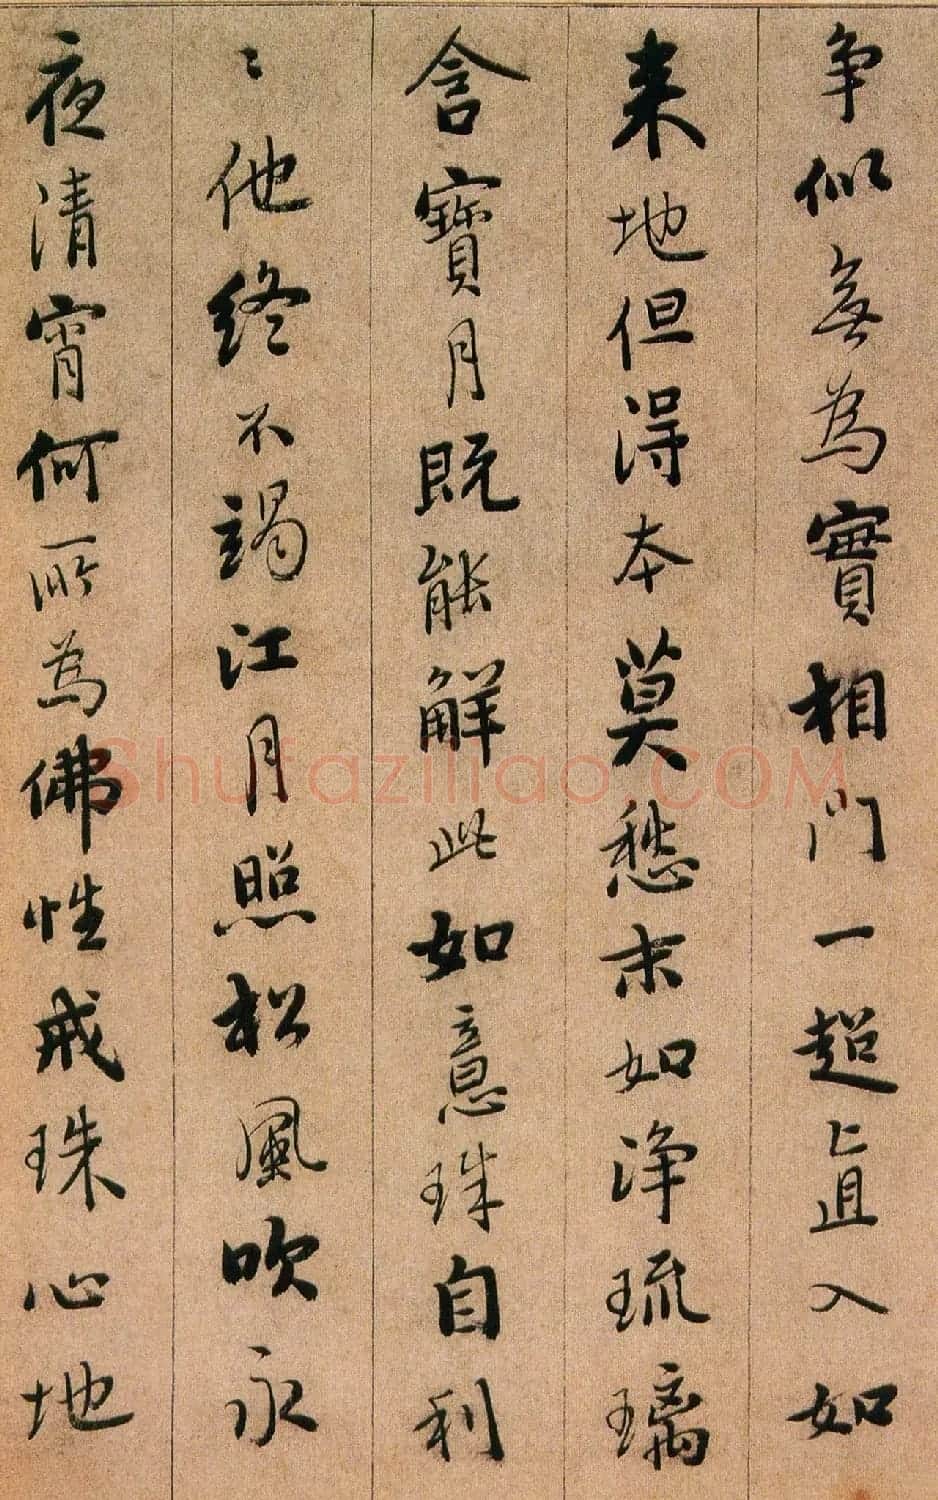 争似無為實相門一超直入如
来地但得本莫愁末如浄琉璃
含寶月既能解此如意珠自利
〻他終不竭江月照松風吹永
夜清宵何所為佛性戒珠心地
Shufaziliao.COM